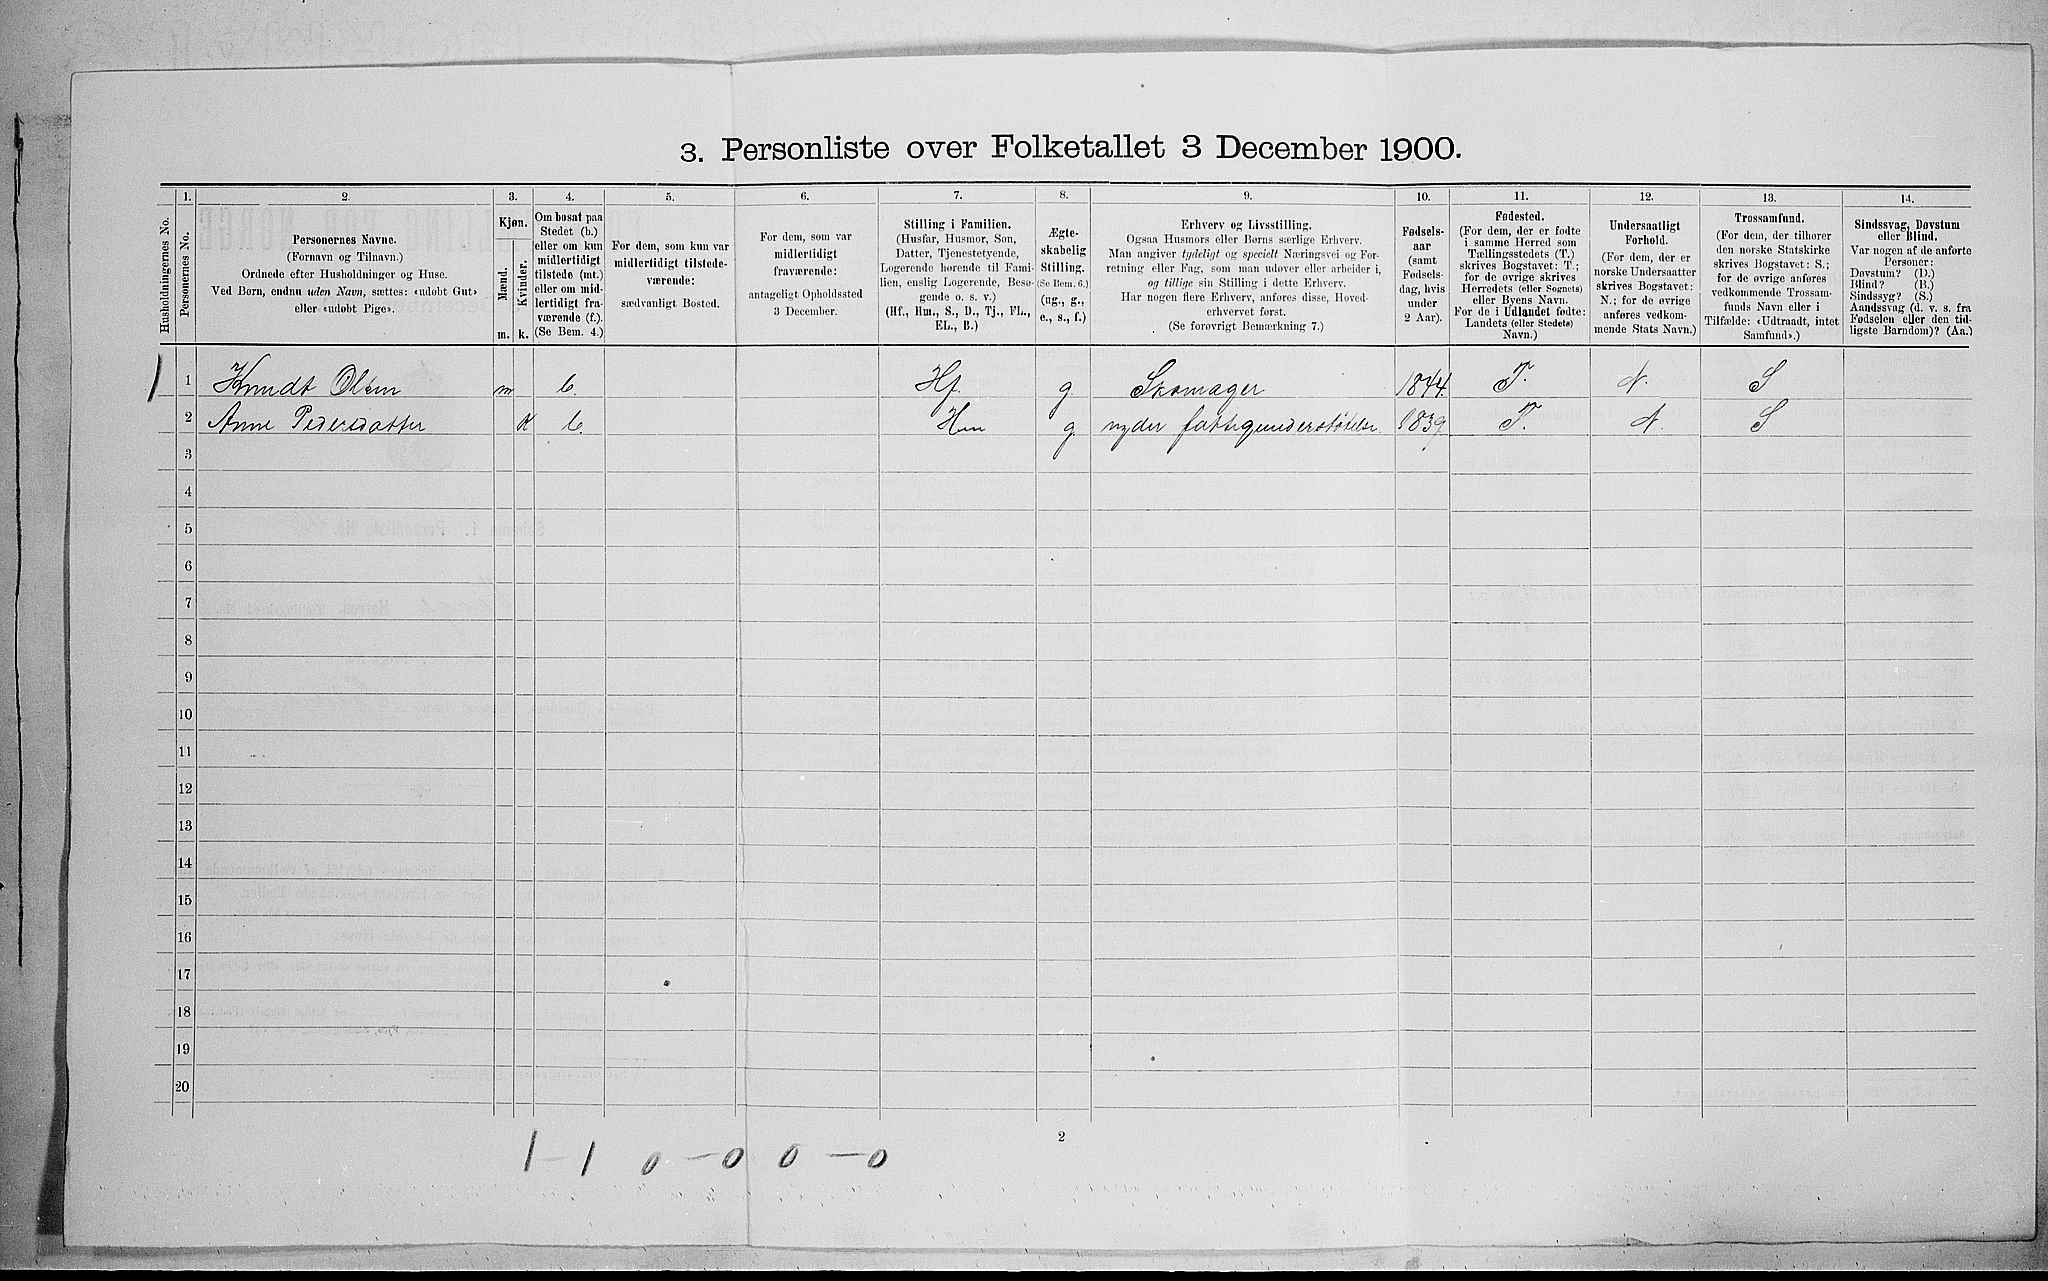 3. Personliste over Folketallet 3 December 1900.
Husholdningernes No.
1.
Personernes No.
2.
Personernes Navne.
(Fornavn og Tilnavn.)
Ordnede efter Husholdninger og Huse.
Ved Børn, endnu uden Navn, sættes: «udobt Gut»
eller «udobt Pige».
3.
Kjøn.
Mænd.
Kvinder.
m. k.
4.
Om bosat paa
Stedet (b.)
eller om kun
midlertidigt
tilstede (mt.)
eller om mid-
lertidigt fra-
værende (f.).
(Se Bem. 4.)
5.
For dem, som kun var
midlertidigt tilstede-
værende:
sædvanligt Bosted.
6.
For dem, som var
midlertidigt
fraværende:
antageligt Opholdssted
3 December.
7.
Stilling i Familien.
(Husfar, Husmor, Søn,
Datter, Tjenestetyende,
Logerende hørende til Fami-
lien, enslig Logerende, Besø-
gende o. s. v.)
(Hf., Hm., S., D., Tj., FL.,
EL., B.)
8.
Ægte-
skabelig
Stilling.
(Se Bem. 6.)
(ug., g.,
e., s., f.)
9.
Erhverv og Livsstilling.
Ogsaa Husmors eller Børns særlige Erhverv.
Man angiver tydeligt og specielt Næringsvei og For-
retning eller Fag, som man udøver eller arbeider i,
og tillige sin Stilling i dette Erhverv.
Har nogen flere Erhverv, anføres disse, Hoved-
erhvervet først.
(Se forøvrigt Bemærkning 7.)
10.
Fødsels-
aar
(samt
Fødsels-
dag, hvis
under
2 Aar).
11.
Fødested.
(For dem, der er fødte
i samme Herred som
Tællingsstedets (T.)
skrives Bogstavet: T.;
for de øvrige skrives
Herredets (eller Sognets)
eller Byens Navn.
For de i Udlandet fødte:
Landets (eller Stedets)
Navn.)
12.
Undersaatligt
Forhold.
(For dem, der er
norske Undersaatter
skrives Bogstavet:
N.; for de øvrige
anføres vedkom-
mende Stats Navn.)
13.
Trossamfund.
(For dem, der tilhører
den norske Statskirke
skrives Bogstavet: S.;
for de øvrige anføres
vedkommende Trossam-
funds Navn eller i
Tilfælde: «Udtraadt, intet
Samfund».)
14.
Sindssvag, Døvstum
eller Blind.
Var nogen af de anførte
Personer:
Døvstum? (D.)
Blind? (B.)
Sindssyg? (S.)
Aandssvag (d. v. s. fra
Fødselen eller den tid-
ligste Barndom)? (Aa.)
1 1 Knudt Olsen m b. Hf. g. Skomager 1844. T. N. S
2 Anne Pedersdatter K b. Hm g. nyder fattigunderstøtelse 1839. T. N. S
3
4
5
6
7
8
9
10
11
12
13
14
15
16
17
18
19
20
2
1 - 1 0 - 0 0 - 0